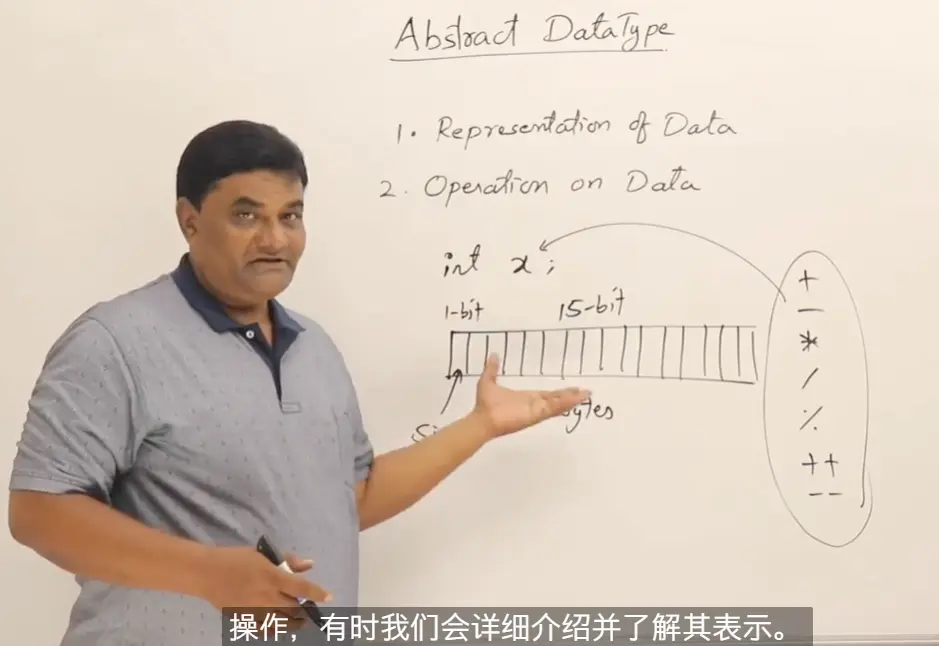 Abstract DataType
1. Representation of Data
2. Operation on Data
int x;
1-bit 15-bit
bytes
+
-
*
/
%
++
--
操作，有时我们会详细介绍并了解其表示。